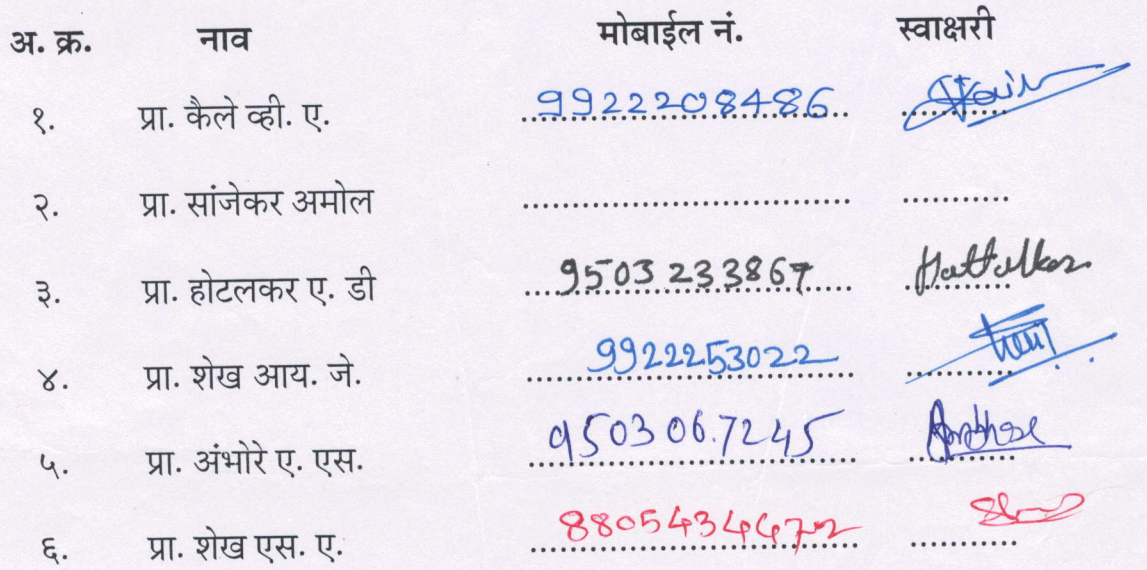 अ. क्र. नाव मोबाईल नं. स्वाक्षरी
१. प्रा. कैले व्ही. ए. 9922208486
२. प्रा. सांजेकर अमोल
३. प्रा. होटलकर ए. डी 9503233867 Hattalkar
४. प्रा. शेख आय. जे. 9922253022
५. प्रा. अंभोरे ए. एस. 9503067245 Ambhore
६. प्रा. शेख एस. ए.